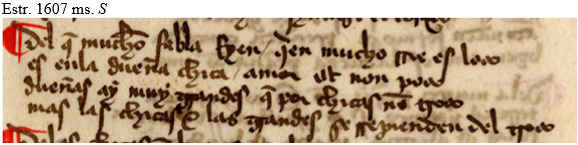 Estr. 1607 ms. S
del q̃ mucho fabla Ryen / q̃en mucho rrie es loco
es enla dueña chica / amor et non poco
dueñas ay muy grandes q̃ por chicas nõ troco
mas las chicas e las grandes se rrepienden del troco